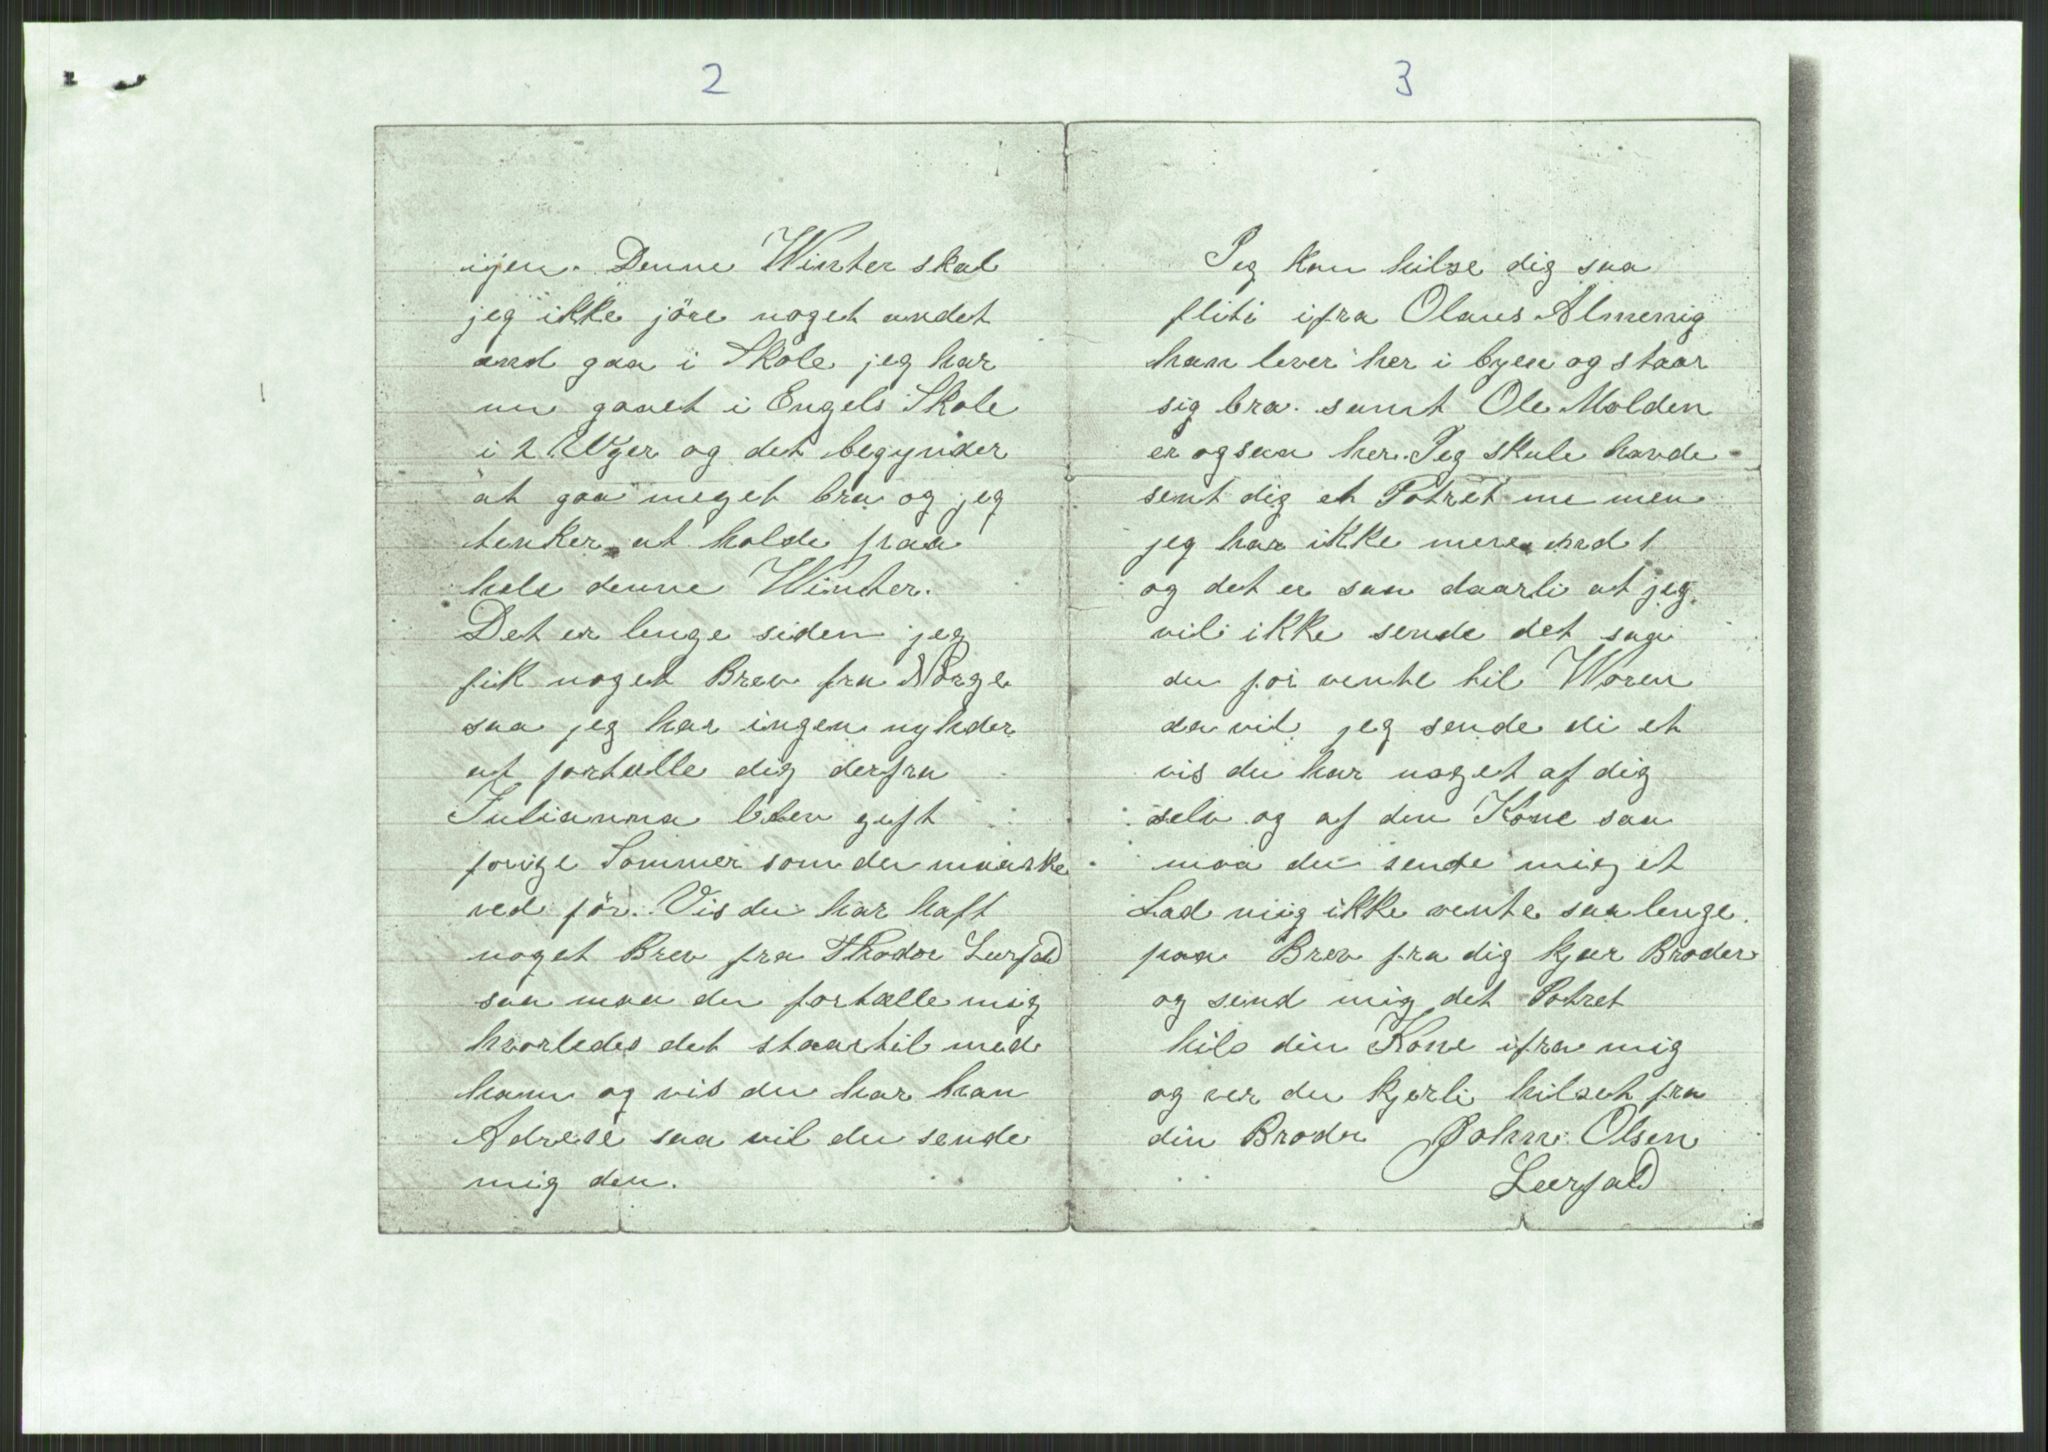 2
igen. Denne Winter skal
jeg ikke jöre noget andet
end gaa i Skole jeg har
nu gaaet i Engels Skole
i 2 Uger og det begynder
at gaa meget bra og jeg
tenker at holde paa
hele denne Winter.
Det er lenge siden jeg
fik noget Brev fra Norge
saa jeg har ingen nyheder
at fortælle dig derfra
Julianna blev gift
forige Sommer som du maaske
ved för. Vis du har haft
noget Brev fra Thodor Leerfald
saa maa du fortælle mig
hvorledes det staar til med
ham og vis du har han
Adrese saa vil du sende
mig den.
3
Jeg kan hilse dig saa
fliti ifra Olaus Almenig
han lever her i byen og staar
sig bra. samt Ole Molden
er ogsaa her. Jeg skule havde
sent dig et Potret nu men
jeg har ikke mere end 1
og det er saa daarli at jeg
vil ikke sende det saa
du for vente til Woren
da vil jeg sende di et
vis du har noget af dig
selv og af den Kone saa
maa du sende mig et
Lad mig ikke vente saa lenge
paa Brev fra dig kjær Broder
og send mig det Potret
hils din Kone ifra mig
og ver du kjerli hilset fra
din Broder John Olsen
Leerfald